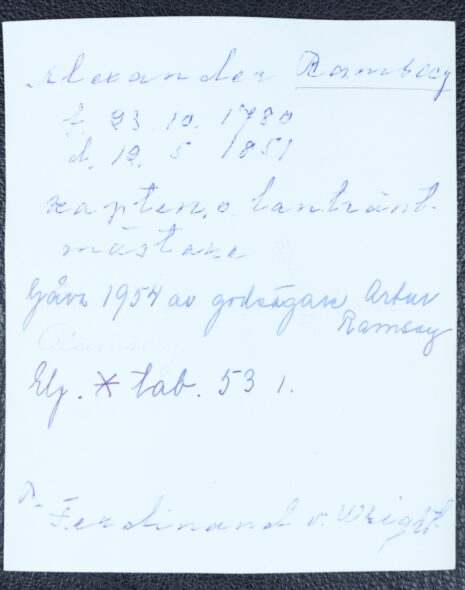 Alexander Ramsay
f. 23. 10. 1780
d. 12. 5 1851
kapten, o. lantränt-
mästare
Gåva 1954 av godsägare Artur
Ramsay
Elg. * tab. 53 1.
Ferdinand v. Wright